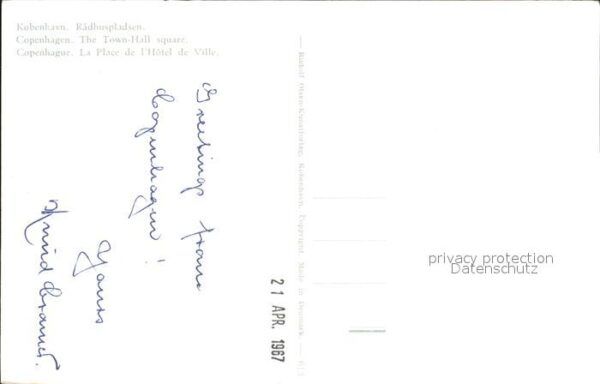 København. Rådhuspladsen.
Copenhagen. The Town-Hall square.
Copenhague. La Place de l'Hôtel de Ville.
Greetings from
Copenhagen!
Yours
Knud
21 APR. 1967
— Rudolf Olsens Kunstforlag, København. Copyright. Made in Denmark. —
privacy protection
Datenschutz